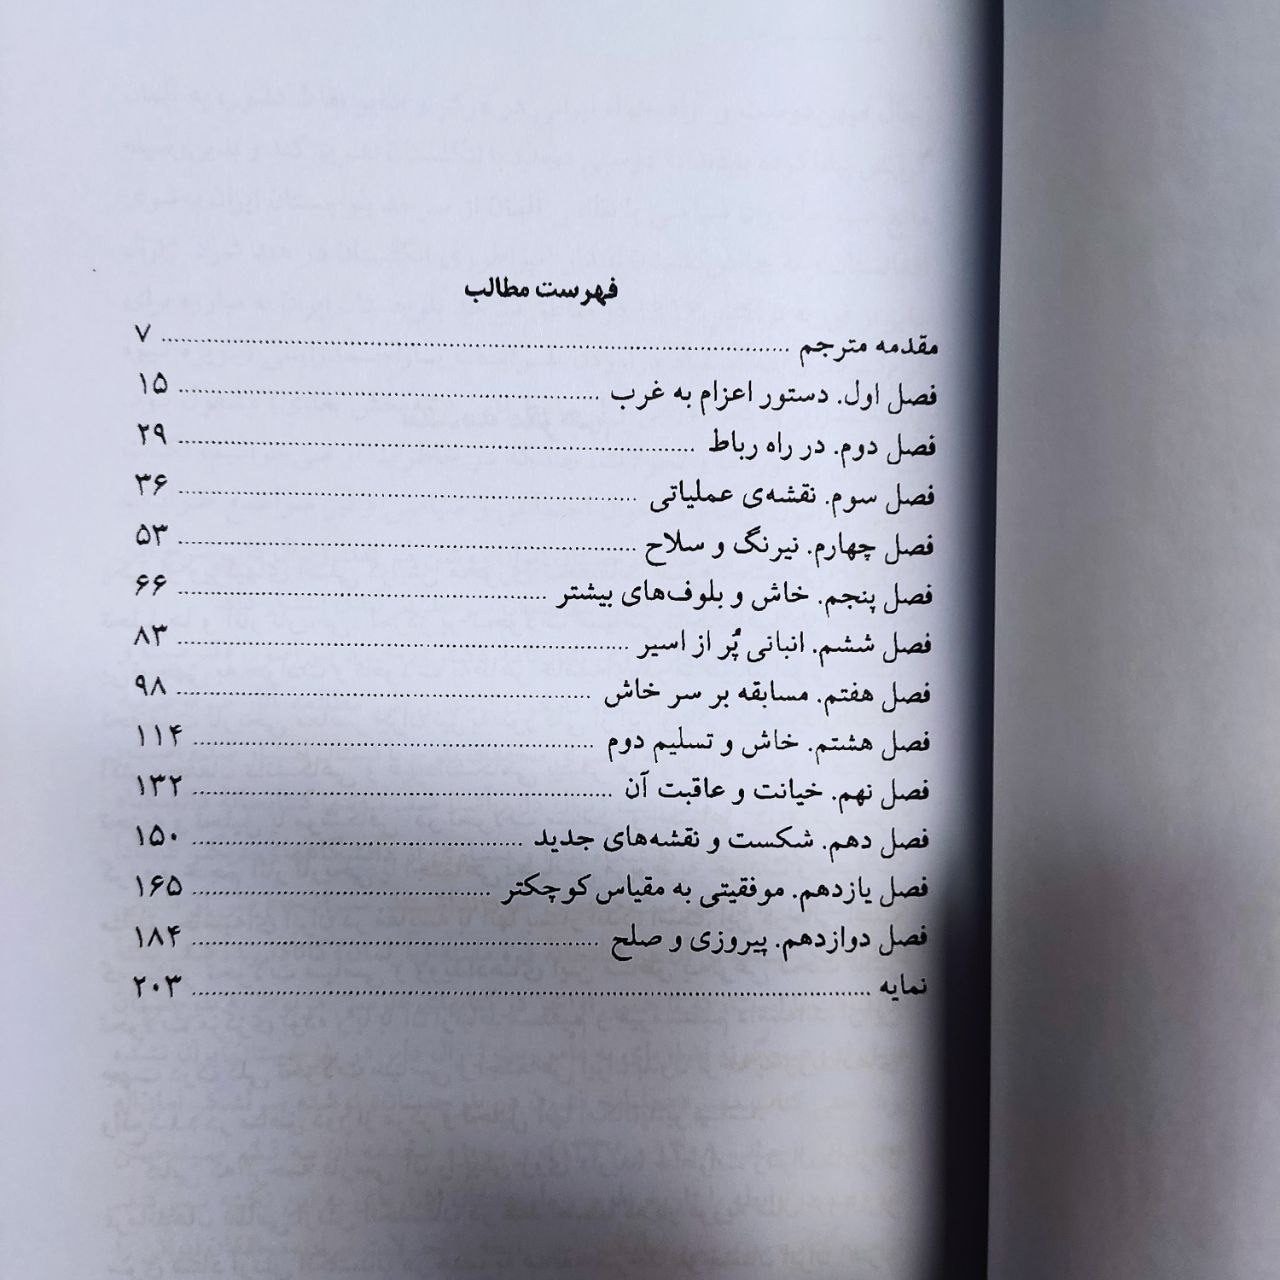 فهرست مطالب
مقدمه مترجم ........ ۷
فصل اول. دستور اعزام به غرب ........ ۱۵
فصل دوم. در راه رباط ........ ۲۹
فصل سوم. نقشه‌ی عملیاتی ........ ۳۶
فصل چهارم. نیرنگ و سلاح ........ ۵۳
فصل پنجم. خاش و بلوف‌های بیشتر ........ ۶۶
فصل ششم. انبانی پُر از اسیر ........ ۸۳
فصل هفتم. مسابقه بر سر خاش ........ ۹۸
فصل هشتم. خاش و تسلیم دوم ........ ۱۱۴
فصل نهم. خیانت و عاقبت آن ........ ۱۳۲
فصل دهم. شکست و نقشه‌های جدید ........ ۱۵۰
فصل یازدهم. موفقیتی به مقیاس کوچکتر ........ ۱۶۵
فصل دوازدهم. پیروزی و صلح ........ ۱۸۴
نمایه ........ ۲۰۳